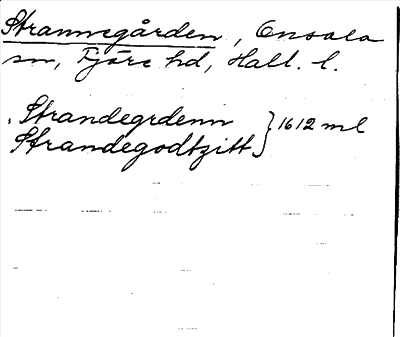 Strannegården, Onsala
sn, Fjäre hd, Hall. l.
Strandegrdenn } 1612 ml
Strandegodtzitt